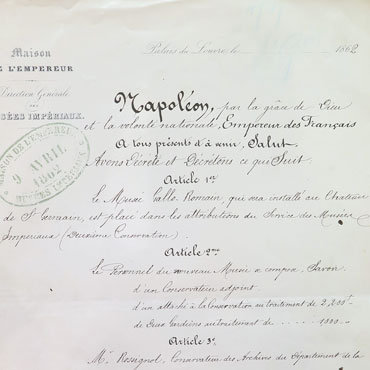 Maison
E L'EMPEREUR
Direction Générale
DES
SÉES IMPÉRIAUX.
Palais du Louvre, le 1862
MAISON DE L'EMPEREUR
9 AVRIL
1862
MUSÉES IMPÉRIAUX
Napoléon, par la grâce de Dieu
et la volonté nationale, Empereur des Français
A tous présents et à venir, Salut.
Avons Décrété et Décrétons ce qui Suit.
Article 1er
Le Musée Gallo Romain, qui sera installé au Château
de St Germain, est placé dans les attributions du Service des Musées
Impériaux (Deuxième Conservation)
Article 2me
Le Personnel du nouveau Musée se compose, Savoir
d'un Conservateur adjoint.
d'un attaché à la Conservation au traitement de 2,200f
de Deux Gardiens au traitement de 1000
Article 3e
Mr. Rossignol, Conservateur des Archives du Département de la